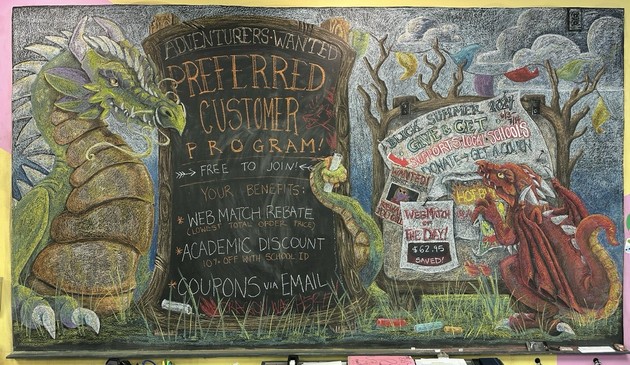 ADVENTURERS·WANTED
PREFERRED
CUSTOMER
PROGRAM!
FREE TO JOIN!
YOUR BENEFITS:
* WEB MATCH REBATE
(LOWEST TOTAL ORDER PRICE)
* ACADEMIC DISCOUNT
10% OFF WITH SCHOOL ID
* COUPONS VIA EMAIL
SUMMER 2024
GIVE & GET
SUPPORTS LOCAL SCHOOLS
DONATE = GET A COUPON
WANTED!
WEB MATCH
OF THE DAY!
$62.95
SAVED!